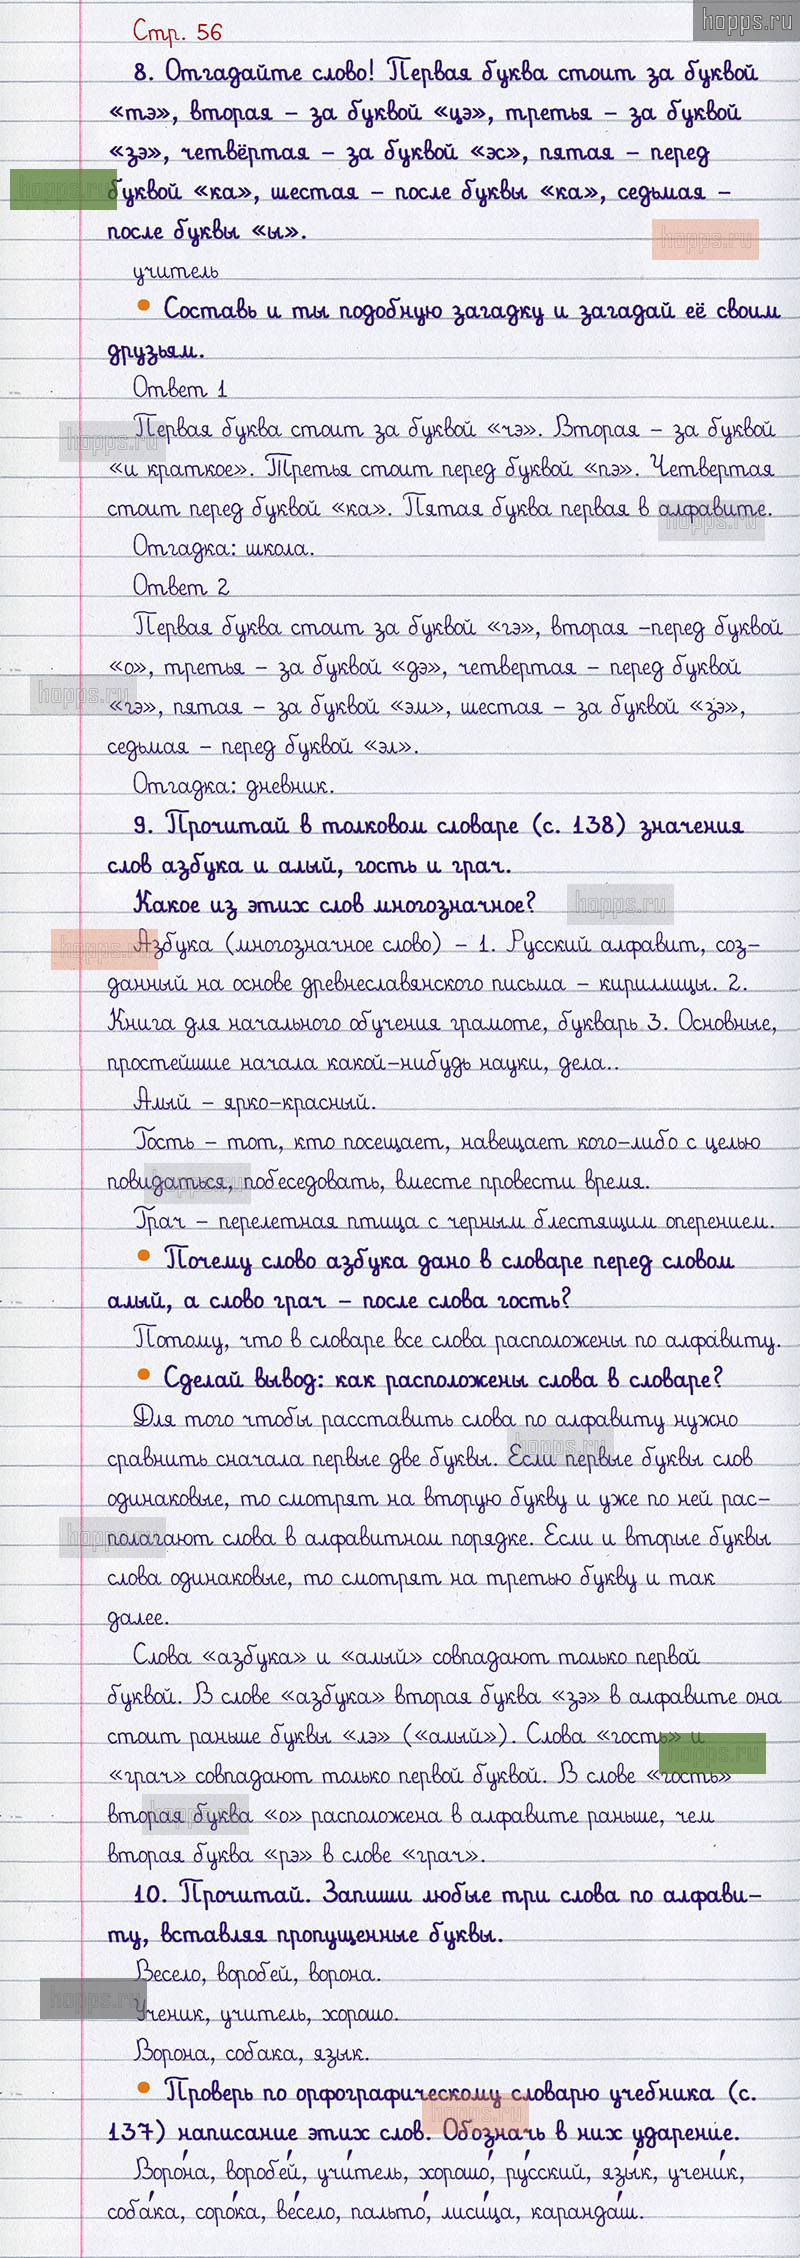 hopps.ru
Стр. 56
8. Отгадайте слово! Первая буква стоит за буквой
«тэ», вторая – за буквой «цэ», третья – за буквой
«зэ», четвёртая – за буквой «эс», пятая – перед
буквой «ка», шестая – после буквы «ка», седьмая –
hopps.ru
после буквы «ы».
hopps.ru
учитель
• Составь и ты подобную загадку и загадай её своим
друзьям.
Ответ 1
Первая буква стоит за буквой «чэ». Вторая – за буквой
hopps.ru
«и краткое». Третья стоит перед буквой «пэ». Четвертая
стоит перед буквой «ка». Пятая буква первая в алфавите.
hopps.ru
Отгадка: школа.
Ответ 2
Первая буква стоит за буквой «гэ», вторая –перед буквой
«о», третья – за буквой «дэ», четвертая – перед буквой
hopps.ru
«гэ», пятая – за буквой «эм», шестая – за буквой «зэ»,
седьмая – перед буквой «эл».
Отгадка: дневник.
9. Прочитай в толковом словаре (с. 138) значения
слов азбука и алый, гость и грач.
Какое из этих слов многозначное?
hopps.ru
Азбука (многозначное слово) – 1. Русский алфавит, соз-
hopps.ru
данный на основе древнеславянского письма – кириллицы. 2.
Книга для начального обучения грамоте, букварь 3. Основные,
простейшие начала какой-нибудь науки, дела..
Алый – ярко-красный.
Гость – тот, кто посещает, навещает кого-либо с целью
повидаться, побеседовать, вместе провести время.
hopps.ru
Грач – перелетная птица с черным блестящим оперением.
• Почему слово азбука дано в словаре перед словом
алый, а слово грач – после слова гость?
Потому, что в словаре все слова расположены по алфавиту.
• Сделай вывод: как расположены слова в словаре?
Для того чтобы расставить слова по алфавиту нужно
hopps.ru
сравнить сначала первые две буквы. Если первые буквы слов
одинаковые, то смотрят на вторую букву и уже по ней рас-
полагают слова в алфавитном порядке. Если и вторые буквы
hopps.ru
слова одинаковые, то смотрят на третью букву и так
далее.
Слова «азбука» и «алый» совпадают только первой
буквой. В слове «азбука» вторая буква «зэ» в алфавите она
стоит раньше буквы «лэ» («алый»). Слова «гость» и
hopps.ru
«грач» совпадают только первой буквой. В слове «гость»
вторая буква «о» расположена в алфавите раньше, чем
hopps.ru
вторая буква «рэ» в слове «грач».
10. Прочитай. Запиши любые три слова по алфави-
ту, вставляя пропущенные буквы.
Весело, воробей, ворона.
hopps.ru
Ученик, учитель, хорошо.
Ворона, собака, язык.
• Проверь по орфографическому словарю учебника (с.
hopps.ru
137) написание этих слов. Обозначь в них ударение.
Воро́на, воробе́й, учи́тель, хорошо́, ру́сский, язы́к, учени́к,
соба́ка, соро́ка, ве́село, пальто́, лиси́ца, каранда́ш.